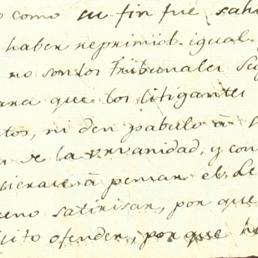 o como su fin fue sati
haber reprimido igual
no son los Tribunales Sa
ara que los litigantes
tos, ni den pabulo à
n de la urvanidad, y con
à pensar el De
eno satirisar, por que
cito ofender, por que h